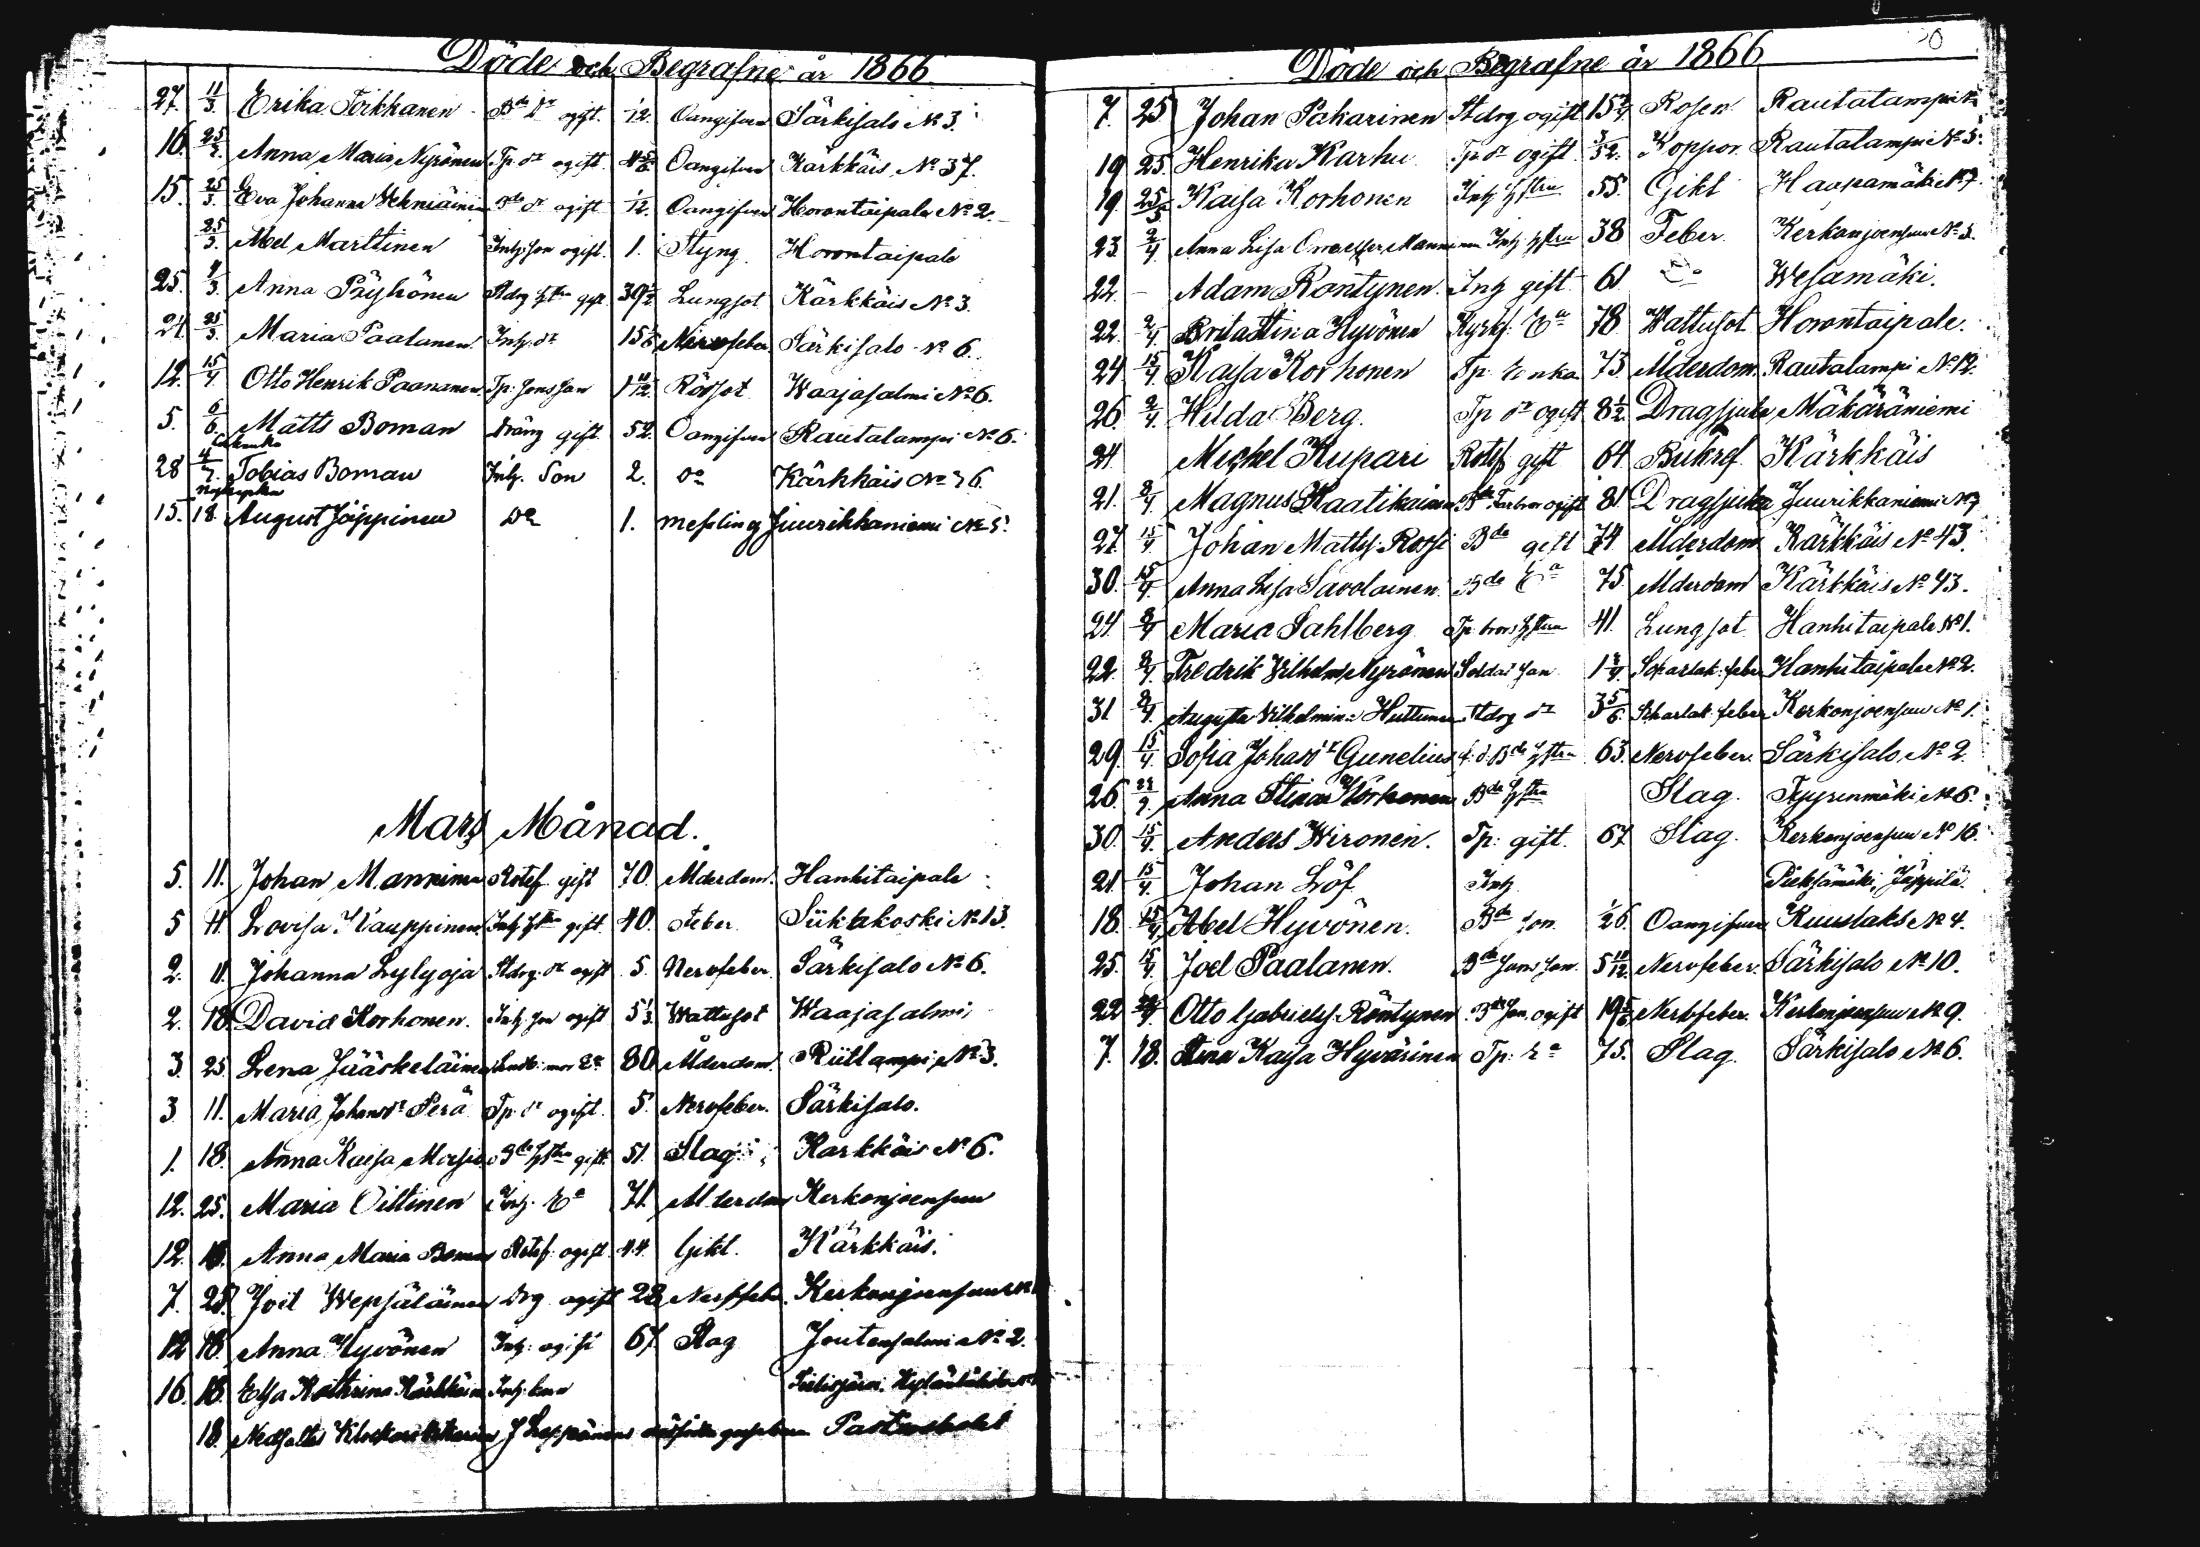 Döde och Begrafne år 1866
27. 11/3. Erika Torkkanen Bde dr ogift. 1/12. Oangifven Särkisalo No 3.
16. 25/3. Anna Maria Nyrönen Tp. dr ogift. Oangifven Kärkkäis No 37.
15. 25/3. Eva Johanna Bde dr ogift 1/12. Oangifven Horontaipale No 2.
25/3. Abel Marttinen Inhs: son ogift. 1. Styng. Horontaipale
25. Anna Pöyhönen Stdrg hstru gift 39 1/2 Lungsot Kärkkäis No 3.
21. 25/3. Maria Paalanen. Inhs. dr Nervfeber Särkisalo No 6.
12. 15/4 Otto Henrik Paananen Tp: sons son 1 11/12. Rödsot Waajasalmi No 6.
5. 6/6. Matts Boman Dräng gift. 52. Oangifven Rautalampi No 6.
28 4/7. Tobias Boman Inhs. Son 2. Do Kärkkäis No 36.
15. 18. August Jäppinen Do 1. messling Juurikkaniemi No 5.
Mars Månad.
5. 11. Johan Manninen Rotef. gift 70. Ålderdom. Hanhitaipale
5 11. Lovisa Kauppinen. Inhs hstru gift. 40. Feber Siikakoski No 13.
2. 11. Johanna Lylyoja Stdrg. dr ogift 5. Nervfeber. Särkisalo No 6.
2. 18. David Korhonen. Inhs. son ogift 5 1/3. Wattusot Waajasalmi
3. 25 Lena Jääskeläinen Ea 80 Ålderdom. Riitlampi No 3.
3 11. Maria Johansdr Perä Tp. dr ogift. 5. Nervfeber. Särkisalo.
1. 18. Anna Kaisa Bde hstru gift. 51. Slag Karkkäis No 6.
12. 25. Maria Oittinen Inhs. Ea 71. Ålderdom Kerkonjoensuu
12. 18. Anna Maria Boman Rotef. ogift. 44. Gikt. Kärkkäis.
7. 25. Joel Wepsäläinen Drg ogift 28 Nervfeber. Kerkonjoensuu
12 18. Anna Hyvönen Inhs: ogift 67. Slag Joutensalmi No 2.
16. 18. Elsa Kathrina Kärkkäinen Inhs. Enka
18. J Leppänens Pastorsbolet
Döde och Begrafne år 1866
7. 25 Johan Pakarinen Stdrg ogift Rosen Rautalampi
19 25. Henrika Karhu Tp. dr ogift 3/52. Koppor. Rautalampi No 5.
19. 25/3 Kaisa Korhonen Inhs hstru 55. Gikt Haapamäki No 7.
23. 2/4. Anna Lisa Manninen Inhs hstru 38 Feber. Kerkonjoensuu No 3.
22. – Adam Röntynen. Inhs gift. 61. Do Wesamäki.
22. 2/4. Brita Stina Hyvönen Kyrkf. Ea 78. Wattusot Horontaipale.
24. 15/4. Kaisa Korhonen Tp. Enka 73. Ålderdom. Rautalampi No 12.
26. 2/4. Hilda Berg. Tp dr ogift 8 1/2. Dragsjuka Mäkäräniemi
24. Michel Kupari Rotef gift 64 Bukref. Kärkkäis
21. 8/4. Magnus Kaatikainen Bde Farbror ogift 81. Dragsjuka Juurikkaniemi No 3
27. 15/4 Johan Mattss: Rossi Bde gift 74. Ålderdom Kärkkäis No 43.
30. 15/4. Anna Lisa Savolainen Bde Ea 75. Ålderdom Kärkkäis No 43.
24. 8/4 Maria Sahlberg Tp. brors hstru 41. Lungsot Hanhitaipale No 1.
22. 8/4. Fredrik Vilhelm Nyrönen Soldat son Skarlak: feber Hanhitaipale No 2.
31 8/4. Augusta Vilhelmina Huttunen Stdrg dr 3 5/6. Skarlak: feber Kerkonjoensuu No 1.
29. 15/4. Sofia Johansdr Gunelius f. d. Bde hstru 63. Nervfeber. Särkisalo No 2.
26. Anna Stina Korhonen Bde hstru Slag. Tyyrinmäki No 6.
30. 15/4. Anders Wironen. Tp: gift. 67 Slag. Kerkonjoensuu No 16.
21. 15/4. Johan Löf Inhs Pieksämäki, Jäppilä.
18. 15/4 Abel Hyvönen. Bde son. 1/26. Oangifven Kuuslaks No 4.
25. 15/4 Joel Paalanen. Bde sons son. 5 11/12. Nervfeber. Särkisalo No 10.
22 Otto Gabriels: Röntynen. Bde son. ogift 19 5/6 Nervfeber. Kerkonjoensuu No 9.
7. 18. Anna Kaisa Hyvärinen Tp: Ea 75. Slag. Särkisalo No 6.